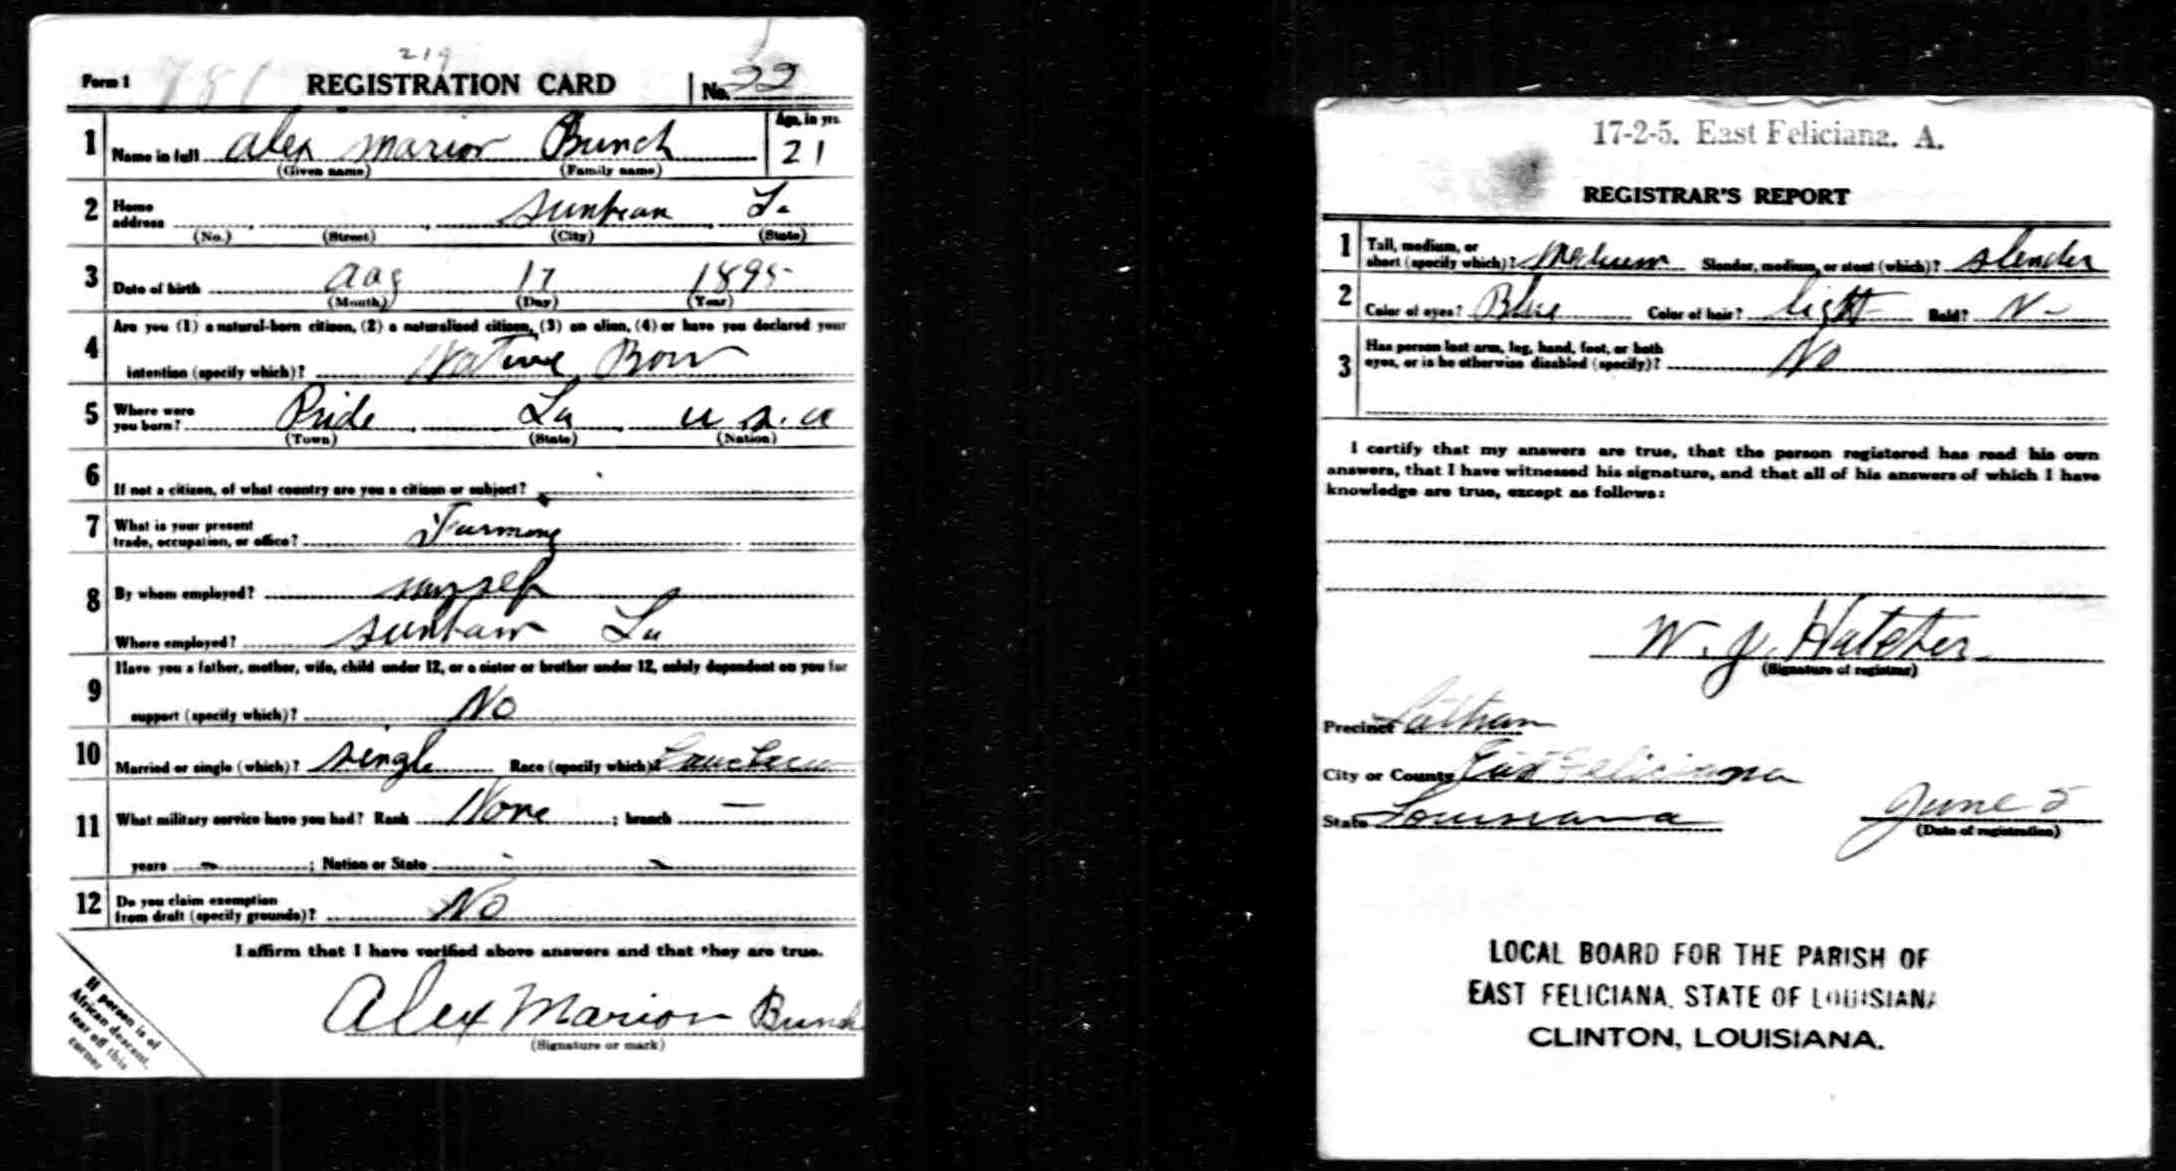 219
Form 1 781 REGISTRATION CARD No. 22
1 Name in full Alex Marion Bunch Age, in yrs. 21
(Given name) (Family name)
2 Home address Sunbean La
(No.) (Street) (City) (State)
3 Date of birth Aug 17 1895
(Month) (Day) (Year)
4 Are you (1) a natural-born citizen, (2) a naturalized citizen, (3) an alien, (4) or have you declared your
intention (specify which)? Native Born
5 Where were you born? Pride La U.S.A
(Town) (State) (Nation)
6 If not a citizen, of what country are you a citizen or subject?
7 What is your present trade, occupation, or office? Farming
8 By whom employed? myself
Where employed? La
9 Have you a father, mother, wife, child under 12, or a sister or brother under 12, solely dependent on you for
support (specify which)? No
10 Married or single (which)? Single Race (specify which)?
11 What military service have you had? Rank None ; branch —
years - ; Nation or State -
12 Do you claim exemption from draft (specify grounds)? No
I affirm that I have verified above answers and that they are true.
Alex Marion Bunch
(Signature or mark)
If person is of
African descent,
tear off this
corner
17-2-5. East Feliciana. A.
REGISTRAR'S REPORT
1 Tall, medium, or short (specify which)? Medium Slender, medium, or stout (which)? slender
2 Color of eyes? Blue Color of hair? light Bald? N-
3 Has person lost arm, leg, hand, foot, or both
eyes, or is he otherwise disabled (specify)? No
I certify that my answers are true, that the person registered has read his own
answers, that I have witnessed his signature, and that all of his answers of which I have
knowledge are true, except as follows:
W. J. Hatcher
(Signature of registrar)
Precinct
City or County East Feliciana
State Louisiana June 5
(Date of registration)
LOCAL BOARD FOR THE PARISH OF
EAST FELICIANA, STATE OF LOUISIANA
CLINTON, LOUISIANA.